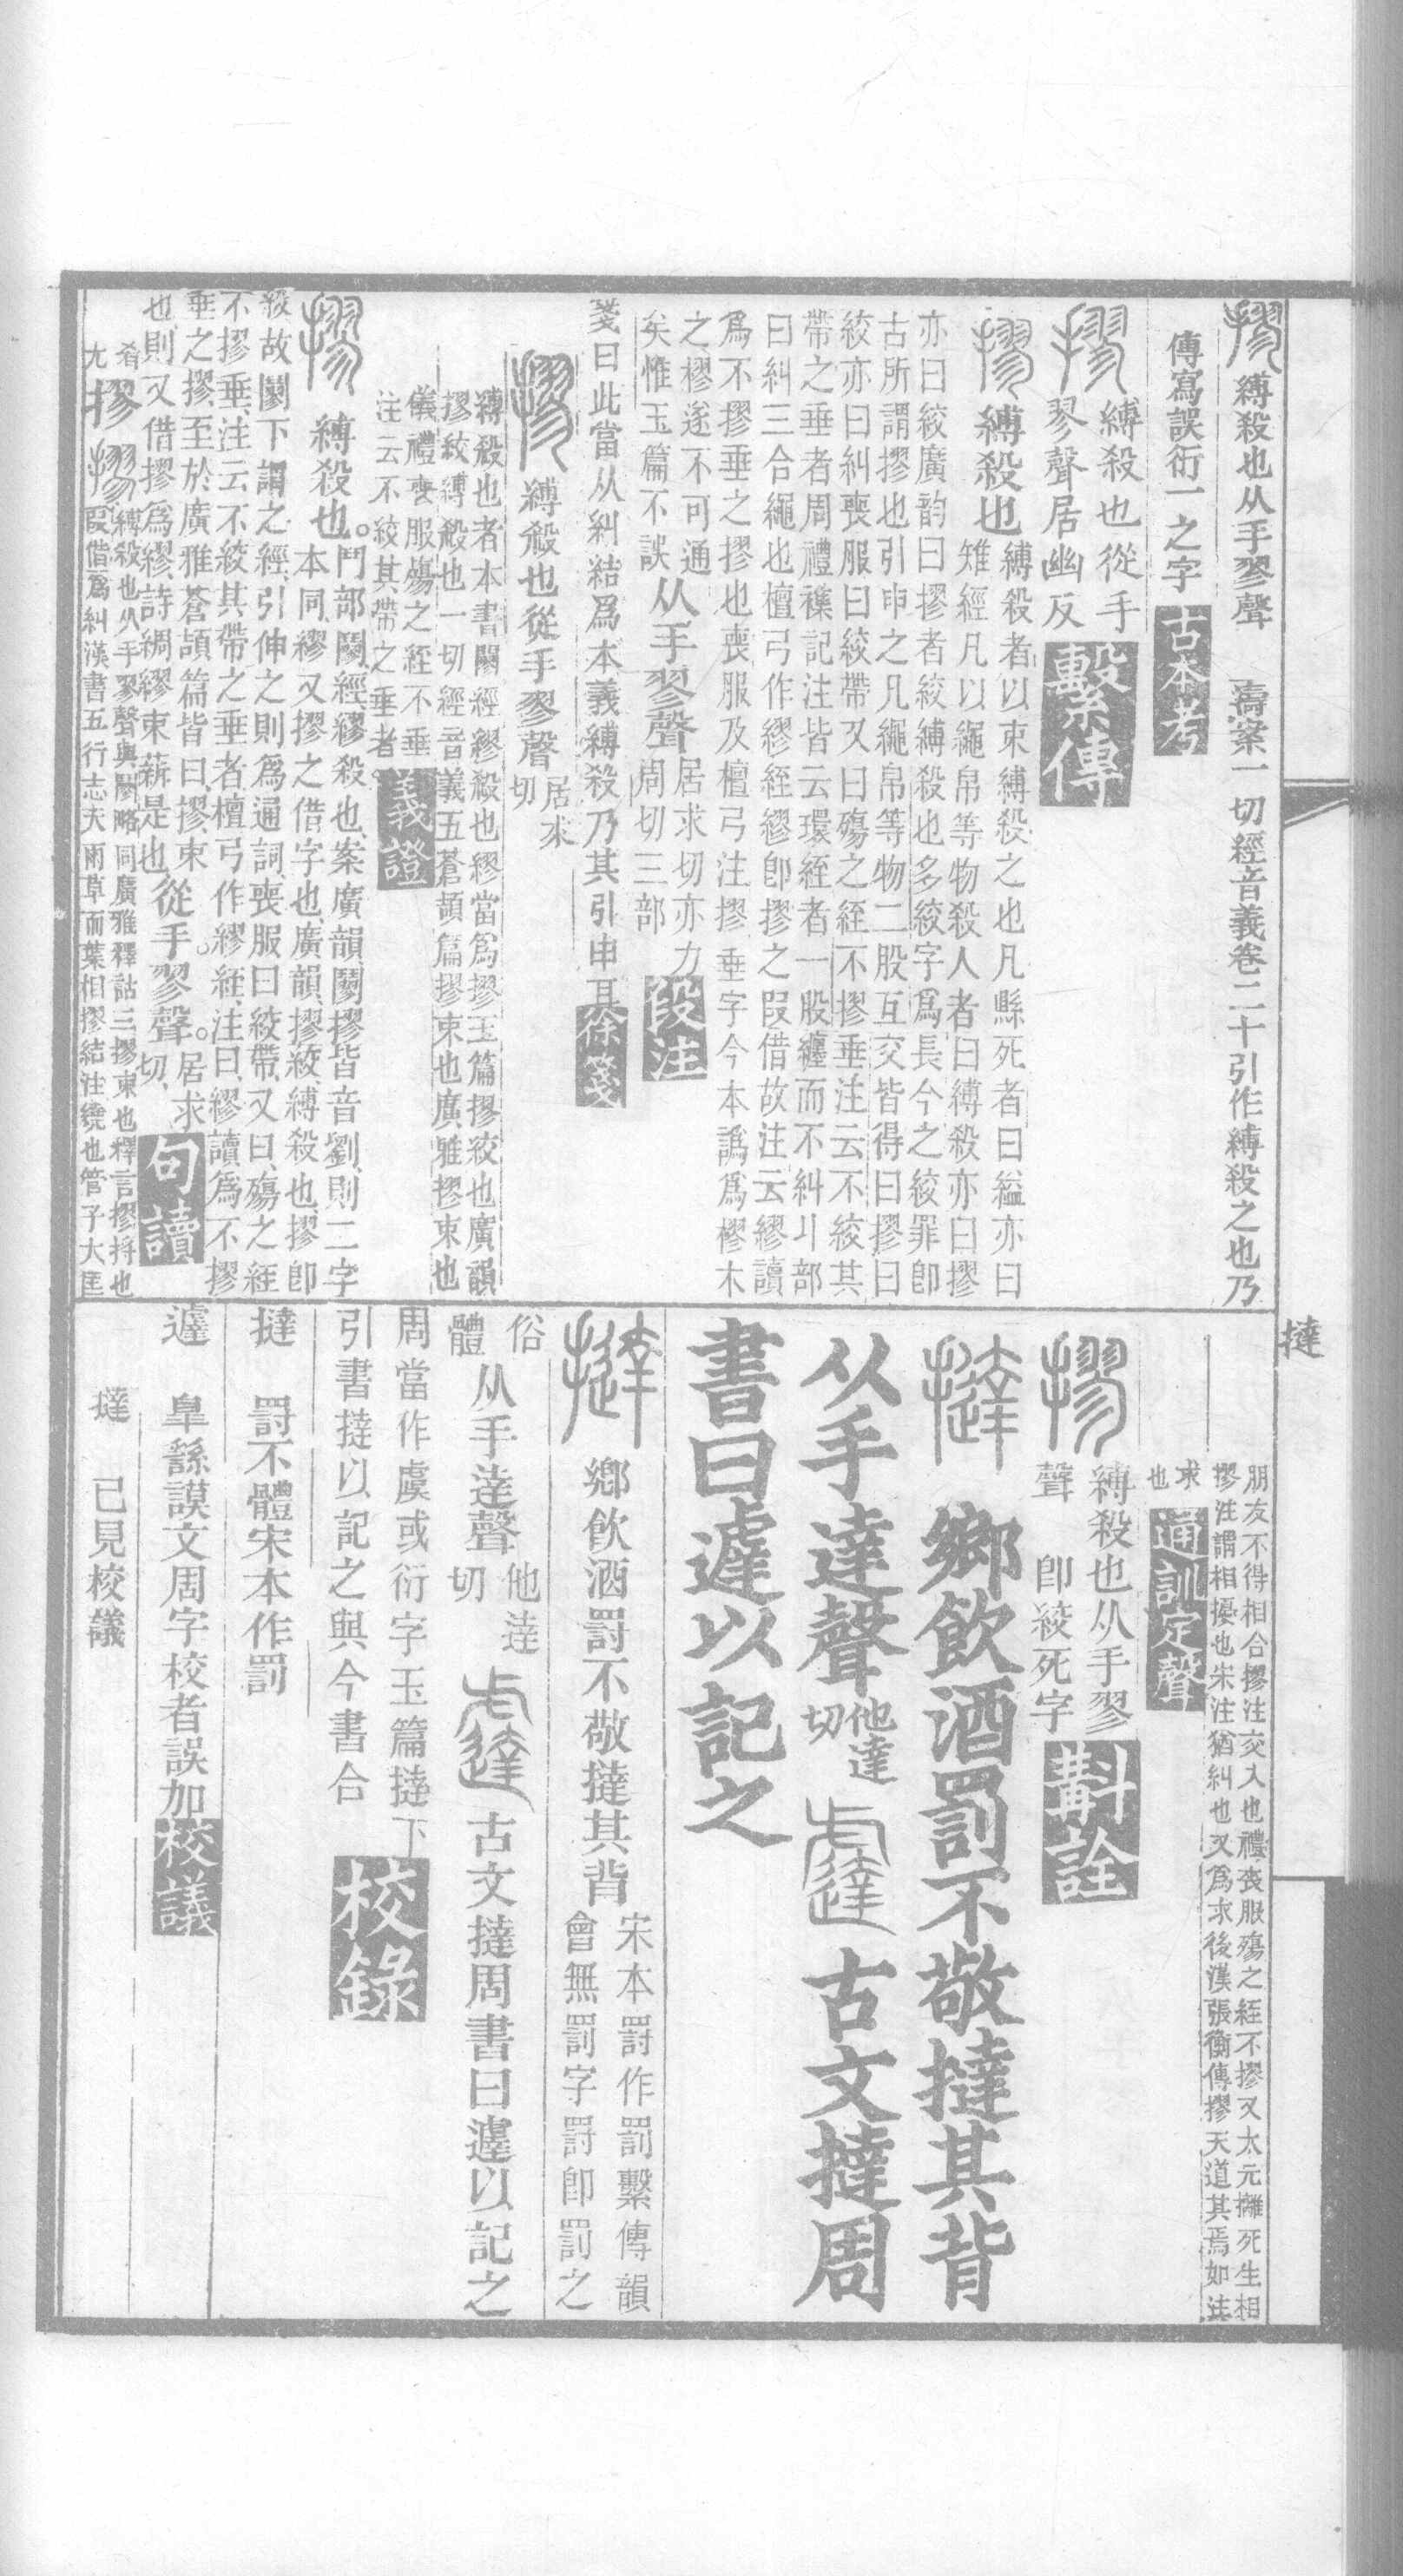 摎縛殺也从手翏聲　濤案一切經音義卷二十引作縛殺之也乃
傳寫誤衍一之字　古本考
摎縛殺也從手
翏聲居幽反　繫傳
摎縛殺也
縛殺者以束縛殺之也凡縣死者曰縊亦曰
雉經凡以繩帛等物殺人者曰縛殺亦曰摎
亦曰絞廣韵曰摎者絞縛殺也多絞字爲長今之絞罪卽
古所謂摎也引申之凡繩帛等物二股互交皆得曰摎曰
絞亦曰糾喪服曰絞帶又曰殤之絰不摎垂注云不絞其
帶之垂者周禮襍記注皆云環絰者一股纏而不糾丩部
曰糾三合繩也檀弓作繆絰繆卽摎之叚借故注云繆讀
爲不摎垂之摎也喪服及檀弓注摎垂字今本譌爲樛木
之樛遂不可通
矣惟玉篇不誤
从手翏聲
居求切亦力
周切三部
段注
箋曰此當从糾結爲本義縛殺乃其引申耳徐箋
摎縛殺也從手翏聲
居求
切
縛殺也者本書鬮經繆殺也繆當爲摎玉篇摎絞也廣韻
摎絞縛殺也一切經音義五蒼頡篇摎束也廣雅摎束也
儀禮喪服殤之絰不垂
注云不絞其帶之垂者
義證
摎縛殺也。
鬥部鬮、經繆殺也、案廣韻鬮摎皆音劉、則二字
本同、繆又摎之借字也、廣韻、摎絞、縛殺也、摎卽
殺、故鬮下謂之經、引伸之則爲通詞、喪服曰絞帶、又曰、殤之絰
不摎垂、注云、不絞其帶之垂者、檀弓作繆絰、注曰、繆讀爲不摎
垂之摎、至於廣雅蒼頡篇皆曰、摎、束
也、則又借摎爲繆、詩綢繆束薪是也
從手。翏聲。
居求
切、
句讀
摎
摎縛殺也从手翏聲與鬮略同廣雅釋詁三摎束也釋言摎捋也
叚借爲糾漢書五行志天雨草而葉相摎結注繞也管子大匡
撻
朋友不得相合摎注交入也禮喪服殤之絰不摎又太元攡死生相
摎注謂相擾也宋注猶糾也又爲求後漢張衡傳摎天道其焉如注
求
也
通訓定聲
摎縛殺也从手翏
聲　卽絞死字　斠詮
撻　鄉飲酒罰不敬撻其背
从手達聲他達切　古文撻周
書曰遽以記之
撻鄉飲酒罸不敬撻其背
宋本罸作罰繫傳韻
會無罰字罸卽罰之
俗
體
从手達聲
他達
切
古文撻周書曰遽以記之
周當作虞或衍字玉篇撻下
引書撻以記之與今書合
校錄
撻　罸不體宋本作罰
遽　臯繇謨文周字校者誤加校議
撻　已見校議